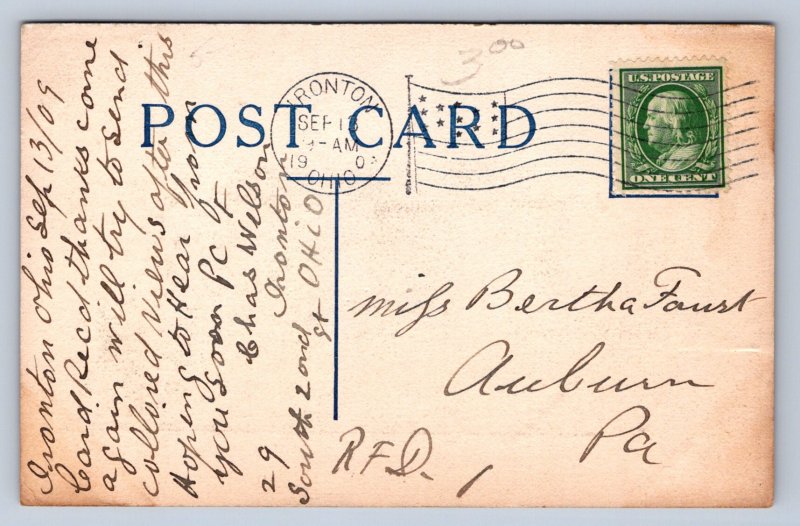 POST CARD
IRONTON
SEP 13
-AM
190
OHIO
U.S. POSTAGE
ONE CENT
3.00
Ironton Ohio Sep 13/09
Card Recd thanks come
again will try to send
collored views after this
Hoping to Hear from
you soon PC F
Chas Wilson
29 Ironton
South 2nd st OHIO
Miss Bertha Faust
Auburn
Pa
RFD. 1